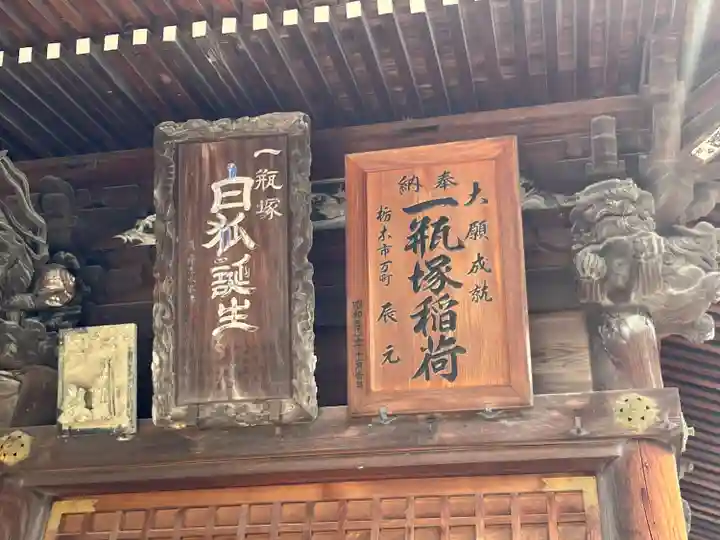 一瓶塚
白狐誕生
大願成就
奉納
一瓶塚稲荷
栃木市万町
辰元